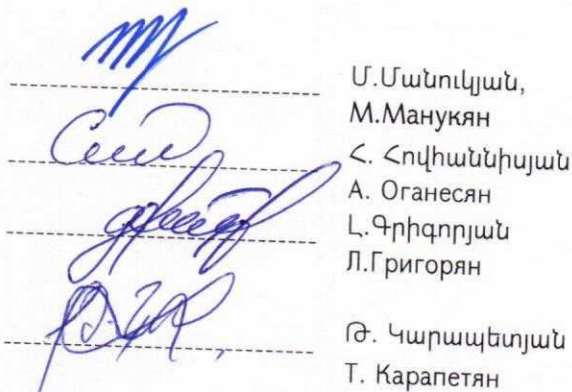 Մ.Մանուկյան,
М.Манукян
Հ. Հովհաննիսյան
А. Оганесян
Լ.Գրիգորյան
Л.Григорян
Թ. Կարապետյան
Т. Карапетян